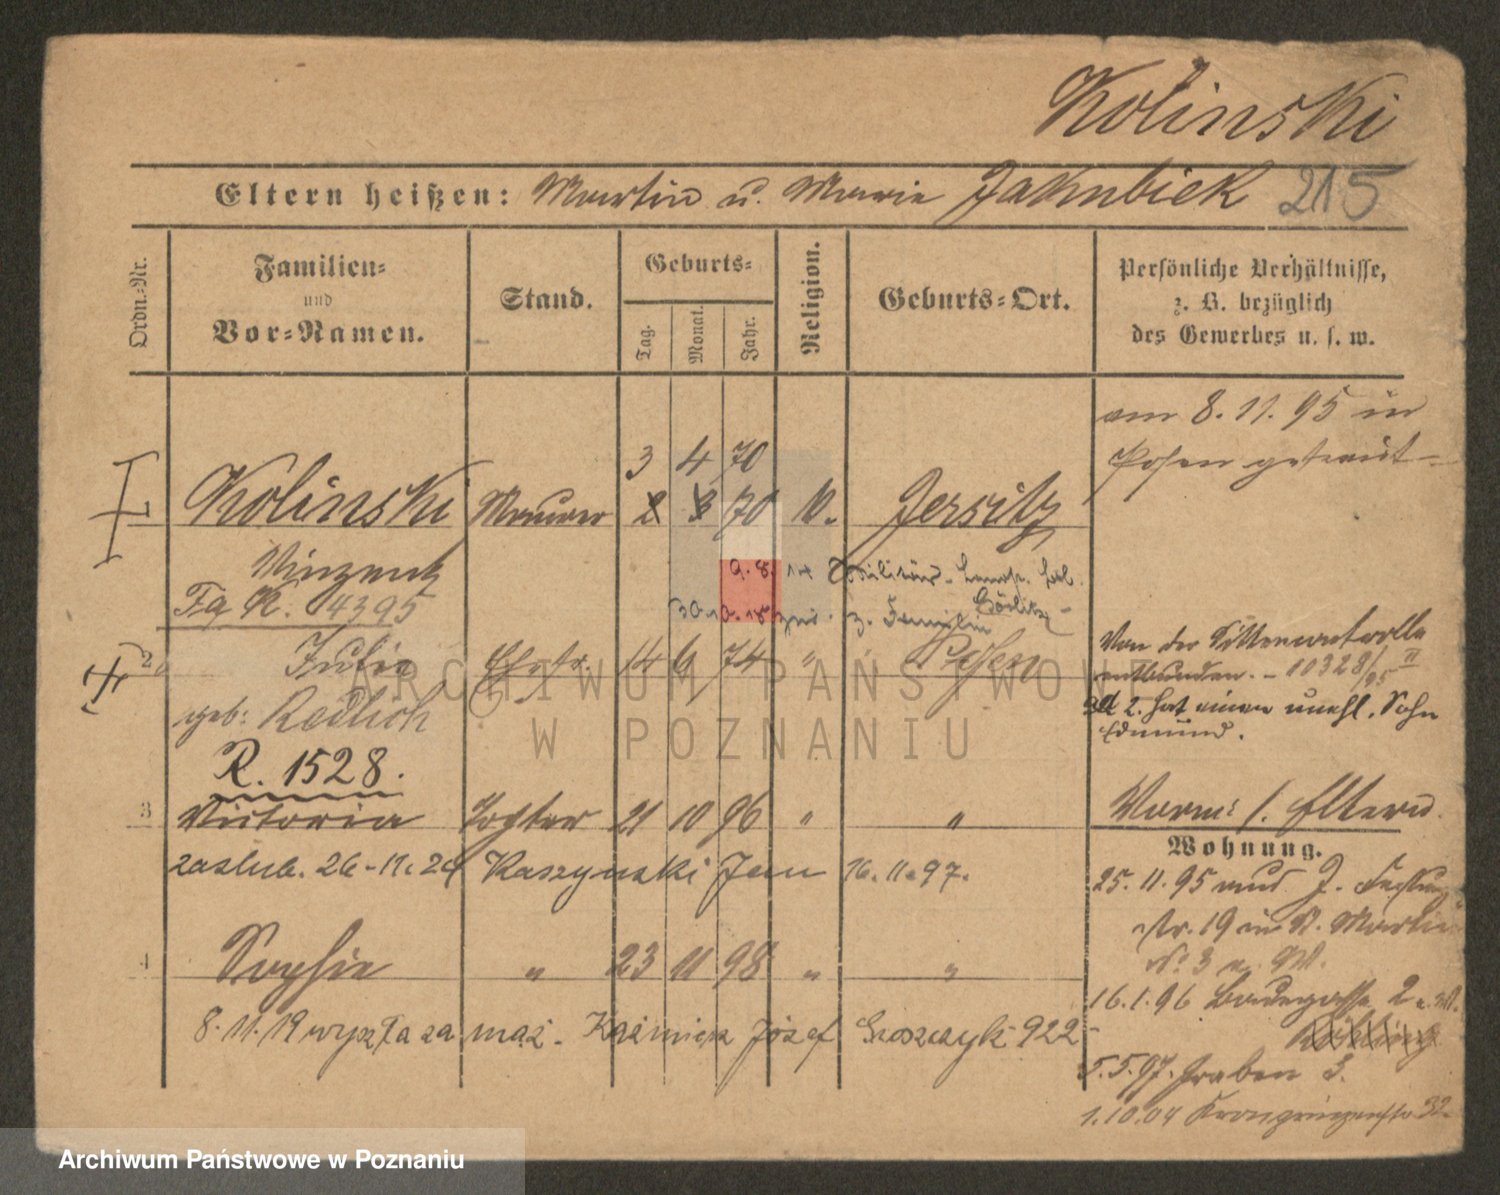 Kolinski
Eltern heißen: Martin u. Marie Jakubiek 215
Ordn.-Nr.
Familien-
und
Vor-Namen.
Stand.
Geburts-
Tag.
Monat.
Jahr.
Religion.
Geburts-Ort.
Persönliche Verhältnisse,
z. B. bezüglich
des Gewerbes u. s. w.
am 8.11.95 in
Posen getraut
3 4 70
Kolinski Maurer 2 3 70 Jersitz
Vinzent
9.8.14 Militär
Fa R. 4395
30.10.18 z. Familie
Görlitz
2 Julie Ehefr. 14 6 74 " Posen
geb: Redlich
Von der Sittenkontrolle
entbunden. - 10328/95 II
2. hat einen unehl. Sohn
Edmund.
R. 1528.
3 Victoria Tochter 21 10 96 " "
zaslub. 26-11.24 Kaszynski Jan 16.11.97.
Vorm: s. Eltern
Wohnung.
25.11.95
str. 19 in St. Martin
No 3
4 Sophie " 23 11 98 " "
8.11.19 wyszła za mąż. Kaźmierz Józef 922
16.1.96 2
5.5.97. Graben 3.
1.10.04 Kronprinzenstr 32
ARCHIWUM PAŃSTWOWE
W POZNANIU
Archiwum Państwowe w Poznaniu